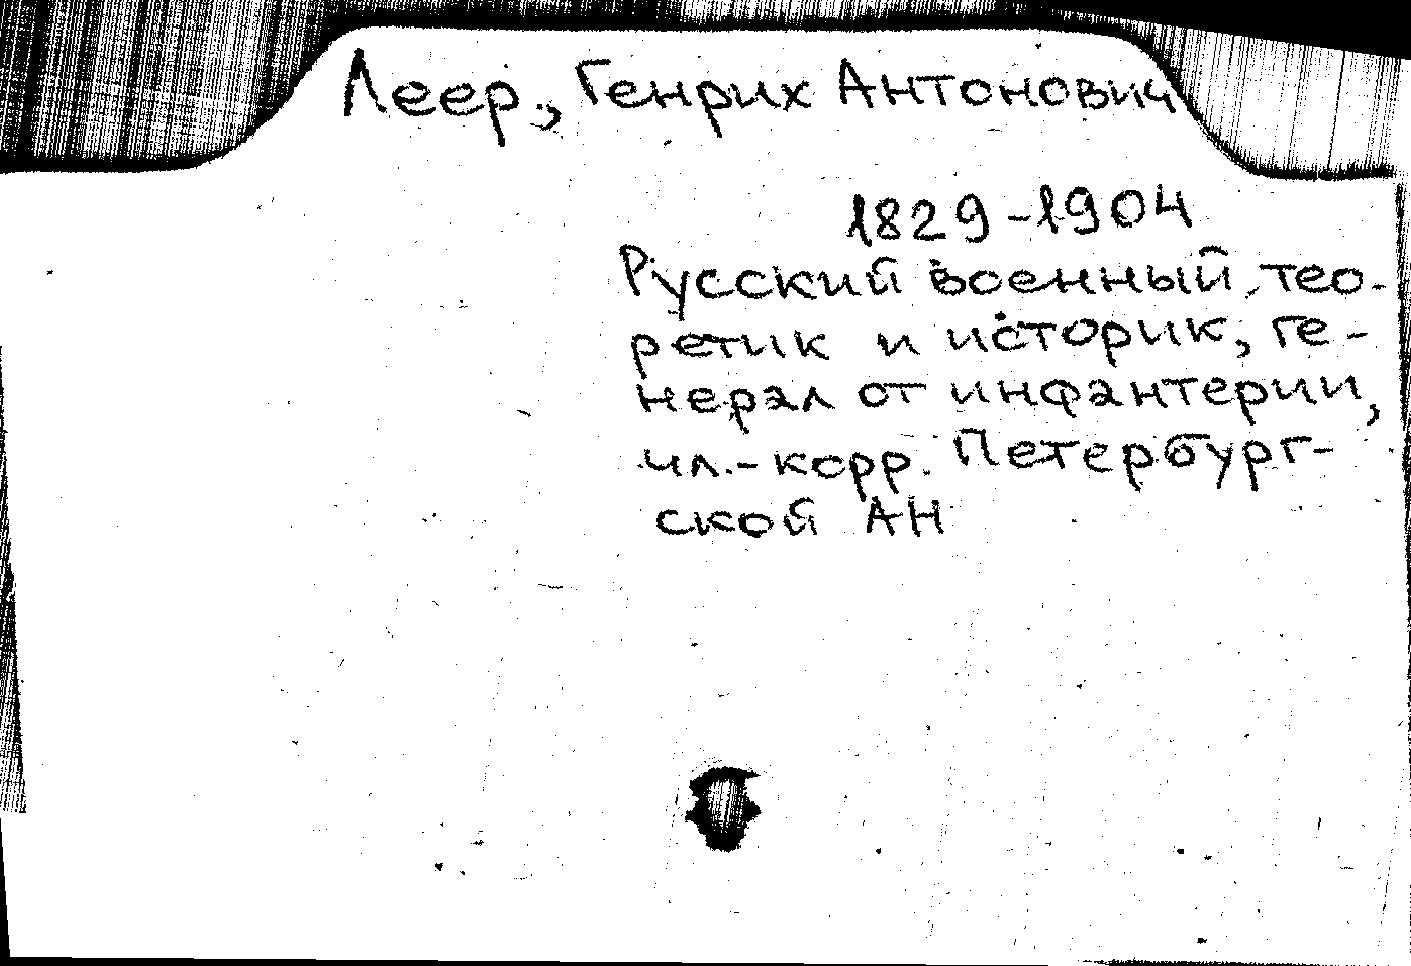 Леер, Генрих Антонович
1829-1904
Русский военный тео-
ретик и историк, ге-
нерал от инфантерии,
чл.-корр. Петербург-
ской АН